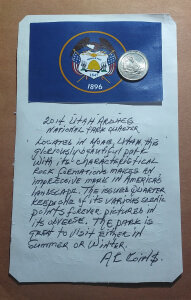 1896
2014 UTAH ARCHES
NATIONAL PARK QUARTER
LOCATED IN MOAB, UTAH THIS
GLORIOUSLY BEAUTIFUL PARK
WITH ITS CHARACTERISTICAL
ROCK FORMATIONS MAKES AN
IMPRESSIVE MARK IN AMERICA'S
LANDSCAPE. THE ISSUED QUARTER
KEEPS ONE OF ITS VARIOUS SCENIC
POINTS FOREVER PICTURED IN
ITS REVERSE. THE PARK IS
GREAT TO VISIT EITHER IN
SUMMER OR WINTER.
AC COINS.